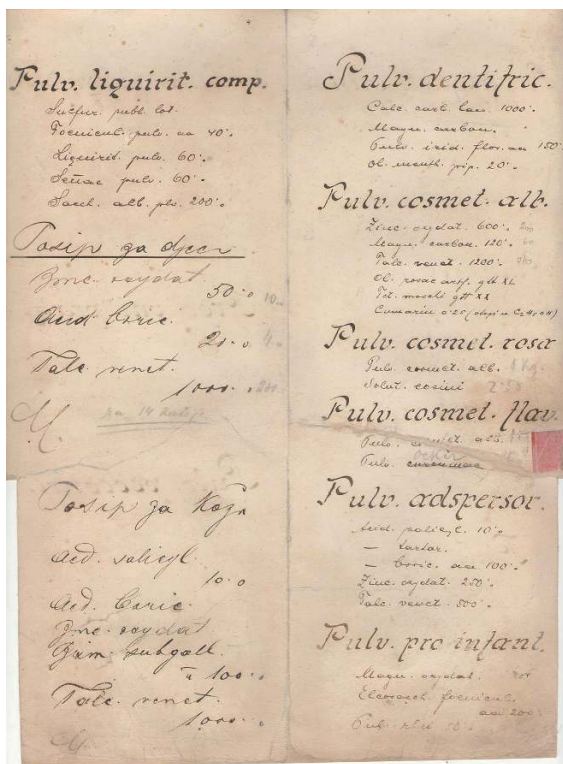 Pulv. liquirit. comp.
Sulfur. subl. lot.
Foenicul. pulv. aa 40·
Liquirit. pulv. 60·
Sennae pulv. 60·
Sach. alb. plv. 200·
Posip za djecu
Zinc. oxydat
50·0
Acid boric.
20·0
Talc. venet.
1000·
Posip za Kožu
Acd. salicyl.
10·0
Acd. Boric.
Zinc. oxydat
Bism. subgall.
100·0
Talc. venet.
1000·0
Pulv. dentifric.
Calc. carb. laev. 1000·
Magn. carbon.
Pulv. irid. flor. aa 150
Ol. menth. pip. 20·
Pulv. cosmet. alb.
Zinc. oxydat. 600·
Magn. carbon. 120·
Talc. venet. 1200·
Ol. rosae artf. gtt XL
Tct. moschi gtt XX
Cumarin 0·25
Pulv. cosmet. rosa
Pulv. cosmet. alb. 1 Kg.
Solut. eosini
Pulv. cosmet. flav.
Pulv. cosmet. alb.
Pulv. curcumae
Pulv. adspersor.
Acid. salicyl. 10·
— tartar.
— boric. aa 100·
Zinc. oxydat. 250·
Talc. venet. 500·
Pulv. pro infant.
Magn. oxydat.
Elaeosach. foeniculi
aa 200
Pulv. rhei 50·